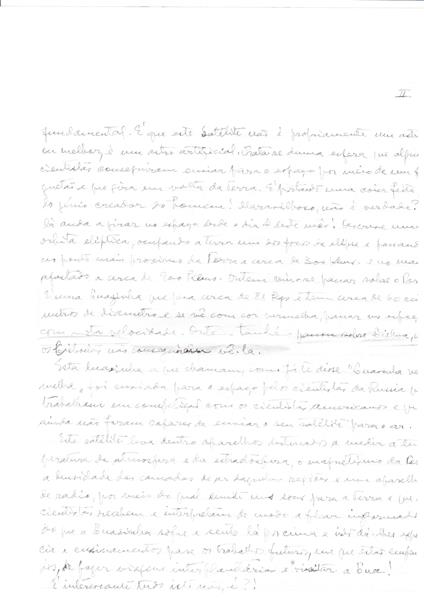 II
fundamental. É que este satélite não é propriamente um
ou melhor, é um astro artificial. Trata-se duma esfera que
cientistas conseguiram enviar para o espaço por meio de um
e que gira em volta da terra. É portanto uma coisa feita
do génio creador do homem! Maravilhoso, não é verdade?
Lá anda a girar no espaço desde o dia 4 deste mês! Descreve uma
orbita elíptica, ocupando a terra um dos focos da elipse e
no ponto mais proximo da Terra a cerca de 300 kms. e no mais
afastado a cerca de 900 kms. Ontem vimo-lo passar sobre o
Luasinha que pesa cerca de 81 kgs e tem cerca de 60
metros de diametro e se vê com cor vermelha, passar no espaço
com velocidade. também passou sobre Lisboa,
os não conseguiram vê-la.
Esta luasinha a que chamam, como já te disse "Luasinha
melha, foi enviada para o espaço pelos cientistas da Russia
trabalham em competição com os cientistas americanos e
ainda não foram capazes de enviar o seu satélite para o ar.
Este satélite leva dentro aparelhos destinados a medir a
peratura da atmosfera e da estratosfera, o magnetismo da
a densidade das camadas de ar daquelas regiões e um aparelho
de radio, por meio do qual emite uns sons para a terra e que
cientistas recebem e interpretam de modo a ficar informados
do que a Luasinha sofre e sente lá por cima e isto dá-lhes
e ensinamentos para os trabalhos futuros, em que estão
de fazer viagens interplanetárias e visitar a Lua!
É interessante tudo isto não, é?!